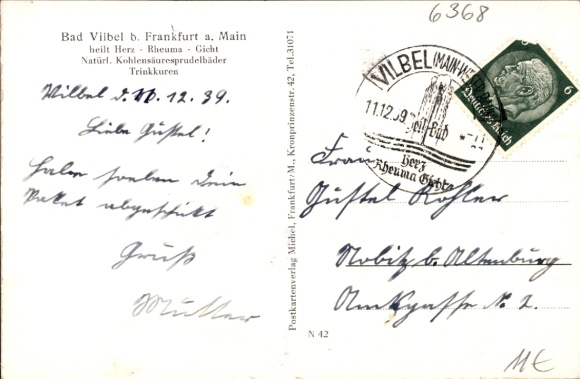 6368
Bad Vilbel b. Frankfurt a. Main
heilt Herz - Rheuma - Gicht
Natürl. Kohlensäuresprudelbäder
Trinkkuren
Vilbel d. 11.12.39.
Liebe Gustel!
Habe soeben Dein
Paket abgeschickt
Gruß
Mutter
Postkartenverlag Michel, Frankfurt/M., Kronprinzenstr. 42, Tel.31071
N 42
VILBEL
11.12.39
Herz
Rheuma Gicht
Deutsches Reich
6
Frau
Gustel Kohler
Nobitz b. Altenburg
No. 2.
11€